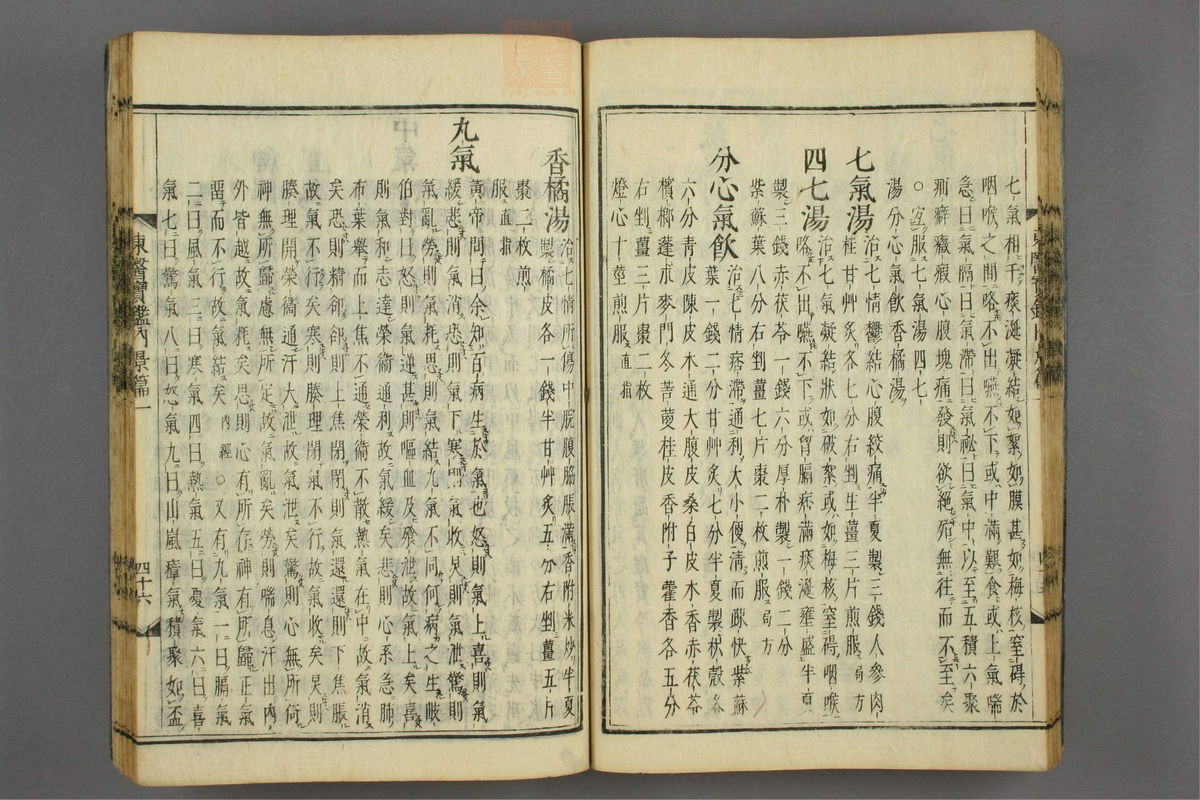 七氣相干痰涎凝結如絮如膜甚如梅核窒碍於
咽喉之間咯不出嚥不下或中滿艱食或上氣喘
急曰氣隔曰氣滯曰氣祕曰氣中以至五積六聚
疝癖癥瘕心腹塊痛發則欲絶殆無往而不至矣
○宜服七氣湯四七
湯分心氣飮香橘湯
七氣湯 治七情鬱結心腹絞痛半夏製三錢人參肉
桂甘艸炙各七分右剉生薑三片煎服局方
四七湯 治七氣凝結狀如破絮或如梅核窒碍咽喉
咯不出嚥不下或胷膈痞滿痰涎壅盛半夏
製二錢赤茯苓一錢六分厚朴製一錢二分
紫蘇葉八分右剉薑七片棗二枚煎服局方
分心氣飮 治七情痞滯通利大小便淸而疎快紫蘇
葉一錢二分甘艸炙七分半夏製枳殼各
六分靑皮陳皮木通大腹皮桑白皮木香赤茯苓
檳榔蓬朮麥門冬桔梗桂皮香附子藿香各五分
右剉薑三片棗二枚
燈心十莖煎服直指
香橘湯 治七情所傷中脘腹脇脹滿香附米炒半夏
製橘皮各一錢半甘艸炙五分右剉薑五片
棗二枚煎
服直指
九氣
黃帝問曰余知百病生於氣也怒則氣上喜則氣
緩悲則氣消恐則氣下寒則氣收炅則氣泄驚則
氣亂勞則氣耗思則氣結九氣不同何病之生岐
伯對曰怒則氣逆甚則嘔血及飱泄故氣上矣喜
則氣和志達榮衛通利故氣緩矣悲則心系急肺
布葉擧而上焦不通榮衛不散熱氣在中故氣消
矣恐則精却却則上焦閉閉則氣還還則下焦脹
故氣不行矣寒則腠理閉氣不行故氣收矣炅則
腠理開榮衛通汗大泄故氣泄矣驚則心無所倚
神無所歸慮無所定故氣亂矣勞則喘息汗出內
外皆越故氣耗矣思則心有所存神有所歸正氣
畱而不行故氣結矣內經○又有九氣一曰膈氣
二曰風氣三曰寒氣四曰熱氣五曰憂氣六曰喜
氣七曰驚氣八曰怒氣九曰山嵐瘴氣積聚如盃
東醫寶鑑內景篇一
四十六